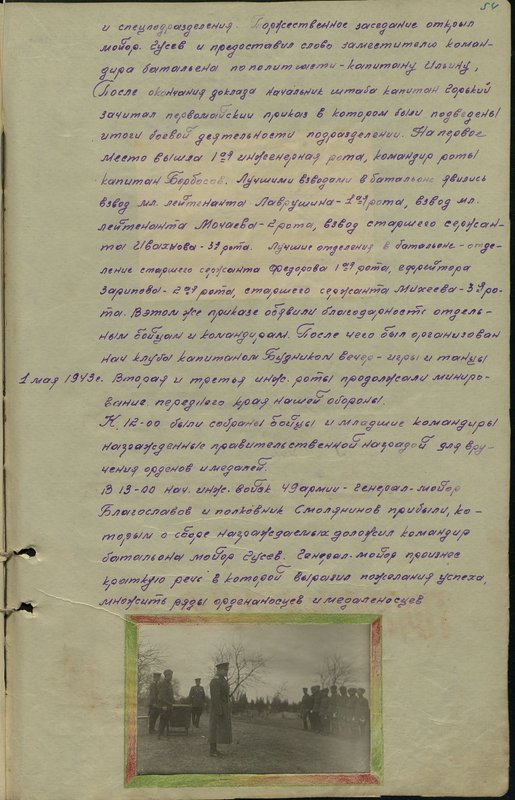 54
и спецподразделения. Торжественное заседание открыл
майор Гусев и предоставил слово заместителю коман-
дира батальена по политчасти - капитану Ильину,
После окончания доклада начальник штаба капитан Горький
зачитал первомайский приказ в котором были подведены
итоги боевой деятельности подразделении. На первое
место вышла 1ая инженерная рота, командир роты
капитан Барбасов. Лучшими взводами в батальоне явились
взвод мл. лейтенанта Лаврушина - 1ая рота, взвод мл.
лейтенанта Мочаева - 2 рота, взвод старшего сержан-
та Ивахнова - 3я рота. Лучшие отделения в батальоне - отде-
ление старшего сержанта Федорова 1ая рота, ефрейтора
Зарипова - 2ая рота, старшего сержанта Михеева - 3я ро-
та. В этом же приказе обявили благодарность отдель-
ным бойцам и командирам. После чего был организован
нач клуба капитаном Будником вечер - игры и танцы
1 мая 1943г. Вторая и третья инж. роты продолжали миниро-
вание переднего края нашей обороны.
К 12-00 были собраны бойцы и младшие командиры
награжденные правительственной наградой для вру-
чения орденов и медалей.
В 13-00 нач. инж. войск 49 армии - генерал-майор
Благославов и полковник Смолянинов прибыли, ко-
торым о сборе награждаемых доложил командир
батальона майор Гусев. Генерал-майор произнес
краткую речь в которой выразил пожелания успеха,
множить ряды орденаносцев и медаленосцев